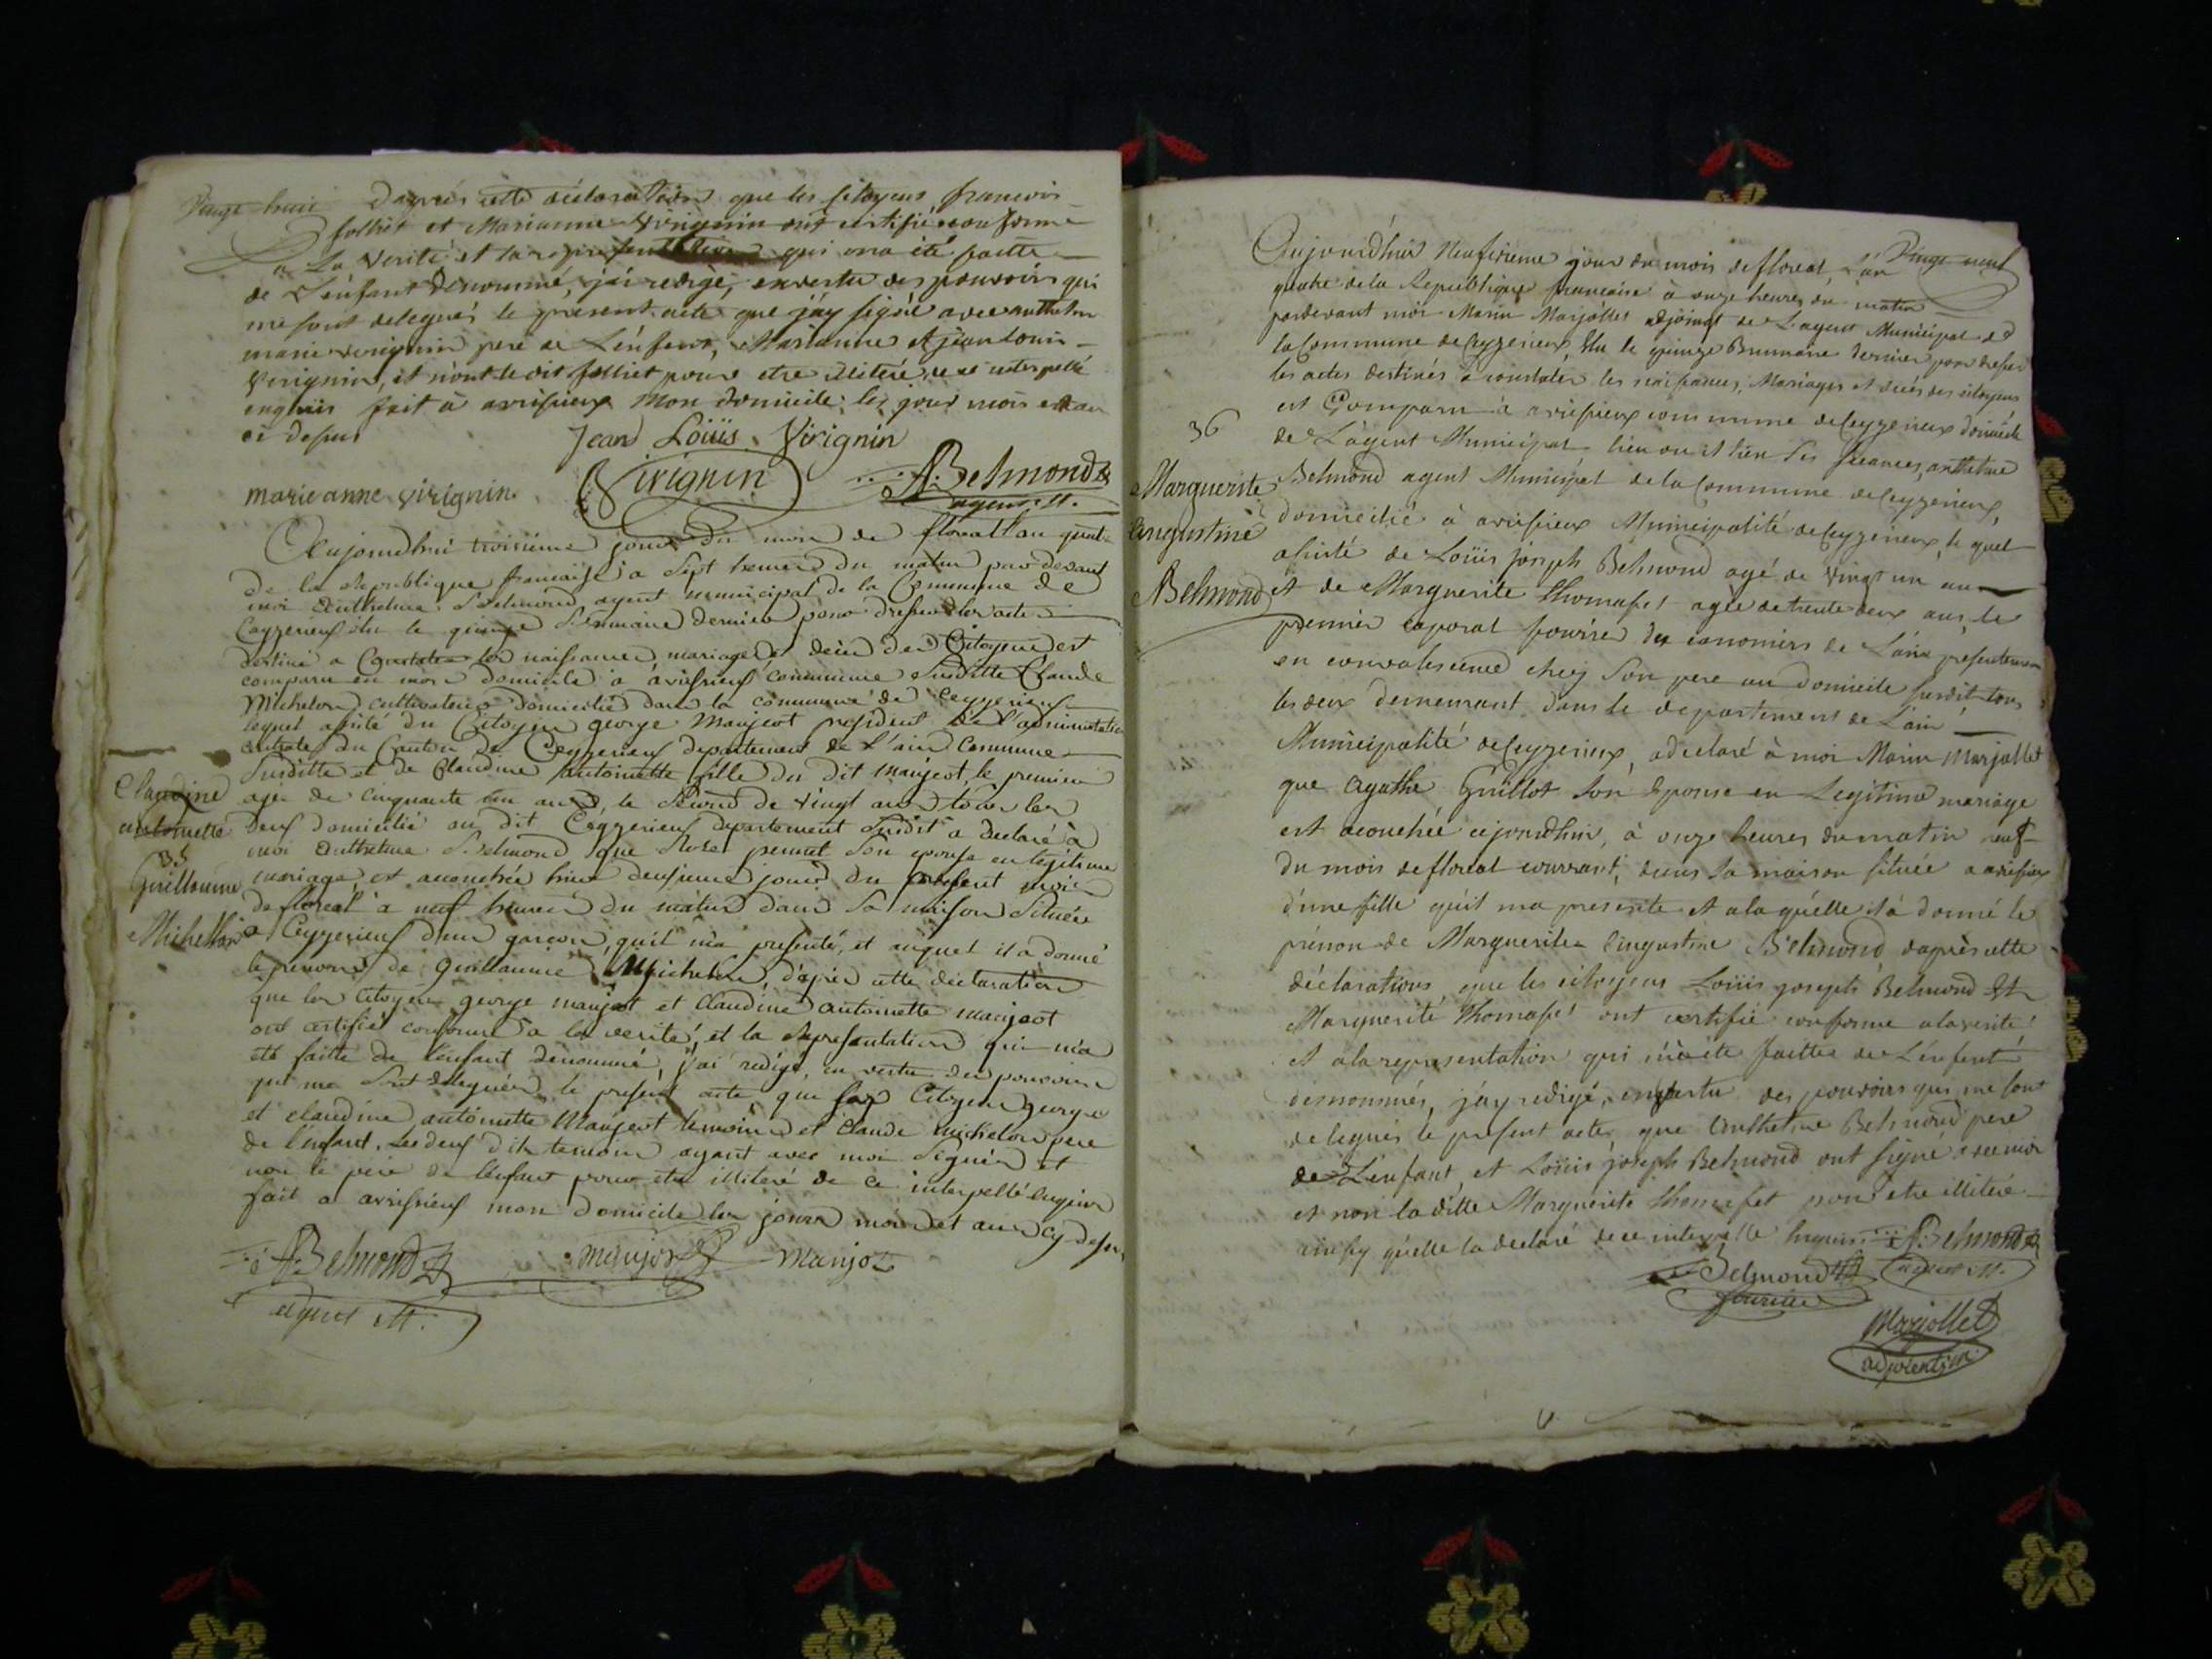 Vingt huit
D'après cette déclaration que les Citoyens francois
folliet et Marianne Virignin ont certifié conforme
a La verité et la representation qui ma été faitte
de L'énfant dénommé, j'ai redigé, en vertu des pouvoirs qui
me sont delegués le present acte que j'áy signé avec anthelme
marie virignin pere de L'énfant, Marianne et jean louis
Virignin, et n'ont le dit folliet pour etre illiteré de ce interpellé
enquis fait à avrisieux Mon domicile les jour mois et an
ci dessus
Jean Loüis Virignin
Virignin
A: Belmond
agent M.
marie anne virignin
Aujourdhui troisième jour du mois de floreal l'an quatre
de la Republique francaise a Sept heures du matin par devant
moi Anthelme Belmond agent municipal de la Commune de
Ceyzerieux élu le quinze Brumaire dernier pour dresser les actes
destiné a Constater les naissances mariages et décès des Citoyens est
comparu en mon domicile a avrisieux commune Susditte Claude
Michelon cultivateur domicilié dans la commune de Ceyzerieux
lequel assisté du Citoyen george Maujeot president de l'administration
centrale du Canton de Ceyzerieux departement de l'ain Commune
Susditte et de Claudine Antoinette fille du dit maujeot, le premier
agé de cinquante un ans, le Second de vingt ans tous les
deux domicilié au dit Ceyzerieux departement Susdit a declaré à
moi Anthelme Belmond que Rose pernet Son epouse en legitime
mariage est acouchée hier deuxieme jour du present mois
de floreal a neuf heures du matin dans Sa maison Située
a Ceyzerieux d'un garçon, qu'il m'a presenté, et auquel il a donné
le prenom de Guillaume Michelon, d'après cette déclaration
que les Citoyens george maujeot et Claudine antoinette maujeot
ont certifié conforme a la verité, et la Representation qui m'a
été faitte de l'enfant dénommé, j'ai redigé, en vertu des pouvoirs
qui me Sont delegués, le present acte que les Citoyens george
et claudine antoinette Maujeot temoins et Claude michelon pere
de l'enfant. Les deux dits temoins ayant avec moi Signés et
non le pere de l'enfant pour etre illiteré de ce interpellé enquis
fait a avrisieux mon domicile les jours mois et an cy dessus
Claudine
antoinette
35
Guillaume
Michellon
A: Belmond
maujot
Maujot
agent M.
Vingt neuf
Aujourdhui Neufvieme jour du mois de floreal L'án
quatre de la Republique francaise à onze heures du matin
pardevant moi Marin Marjollet adjoingt de L'agent Municipal de
la Commune de Ceyzerieux, Elu le quinze Brumaire dernier pour dresser
les actes destinés a constater les naissances, Mariages et décés des citoyens
est Comparu à avrisieux commune de Ceyzerieux domicile
de L'ágent Municipal lieu ou il tien Ses séances, anthelme
Belmond agent Municipal de la Commune de Ceyzerieux,
domicilié à avrisieux Municipalité de Ceyzerieux, le quel
assisté de Loüis joseph Belmond agé de vingt un an
et de Marguerite Thomasset agée de trente deux ans, le
premier caporal fourier des canoniers de L'áin presentement
en convalescence chez Son pere au domicile susdit tous
les deux demeurant dans le departement de L'ain
Municipalité de Ceyzerieux, a déclaré à moi Marin Marjollet
que Agathe Guillot Son Epouse en Legitime mariage
est acouchée cejourdhui, à onze heures du matin neuf
du mois de floreal courrant, dans Sa maison située a avrisieux
d'une fille qu'il ma presente et a la qu'elle il à donné le
prénon de Marguerite augustine Belmond d'aprés cette
déclarations que les citoyens Loüis joseph Belmond Et
Marguerite Thomasset ont certifié conforme a la verité
et a la representation qui m'a été faitte de L'énfent
dénommés, j'áy redigé, en vertu des pouvoirs qui me sont
delegués le present acte, que Anthelme Belmond pere
de L'énfant, et Loüis joseph Belmond ont signé avec moi
et non la ditte Marguerite Thomasset pour etre illiteré
ainsy qu'elle la declaré de ce interpellé enquis
36
Marguerite
augustine
Belmond
A: Belmond
agent M.
Belmond
fourier
Marjollet
adjoient m.